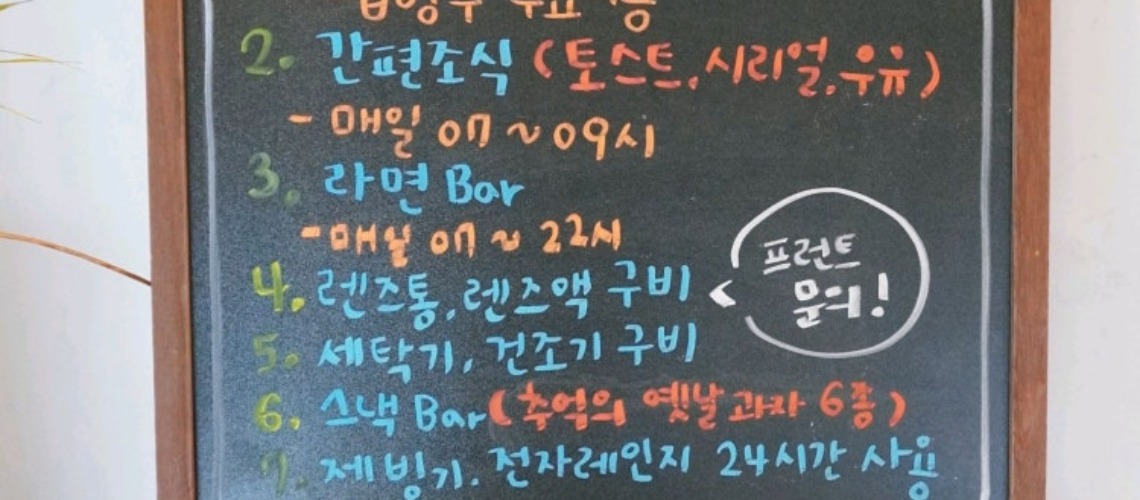 2. 간편조식 (토스트, 시리얼, 우유)
- 매일 07 ~ 09시
3. 라면 Bar
- 매일 07 ~ 22시
4. 렌즈통, 렌즈액 구비
프런트
문의!
5. 세탁기, 건조기 구비
6. 스낵 Bar (추억의 옛날과자 6종)
7. 제빙기. 전자레인지 24시간 사용